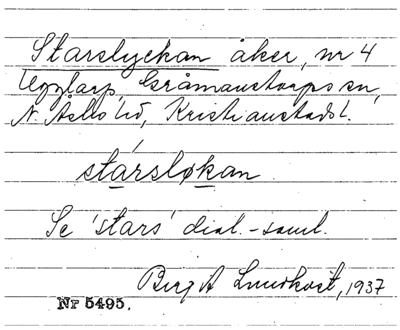 Starslyckan åker, nr 4
Uggltarp, Gråmanstorps sn,
N. Åsbo hd, Kristianstads l.
stársløkan
Se 'stars' dial.-saml.
Birg A Lundkvist, 1937
Nr 5495.